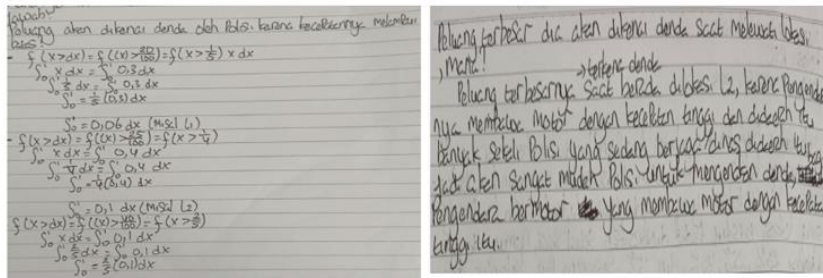 Jawab:
Peluang akan dikenai denda oleh Polisi karena kecepatannya melampaui
batas!
- f(x>dx) = f((x) > 20/100) = f(x > 1/5) x dx
∫₀¹ x dx = ∫₀¹ 0,3 dx
∫₀¹ 1/5 dx = ∫₀¹ 0,3 dx
∫₀¹ = 1/5 (0,3) dx
∫₀¹ = 0,06 dx (Misal L1)
- f(x>dx) = f((x) > 25/100) = f(x > 1/4)
∫₀¹ x dx = ∫₀¹ 0,4 dx
∫₀¹ 1/4 dx = ∫₀¹ 0,4 dx
∫₀¹ = 1/4 (0,4) dx
∫₀¹ = 0,1 dx (Misal L2)
f(x>dx) = f((x) > 40/100) = f(x > 2/5)
∫₀¹ x dx = ∫₀¹ 0,1 dx
∫₀¹ 2/5 dx = ∫₀¹ 0,1 dx
∫₀¹ = 2/5 (0,1) dx
Peluang terbesar dia akan dikenai denda saat melewati lokasi
, mana!
→ terkena denda
Peluang terbesarnya saat berada dilokasi L2, karena Pengenda
nya membawa motor dengan kecepatan tinggi dan didaerah itu
banyak sekali Polisi yang sedang berjaga/dinas didaerah itu
Jadi akan sangat mudah Polisi untuk mengenakan denda,
Pengendara bermotor yang membawa motor dengan kecepatan
tinggi itu.